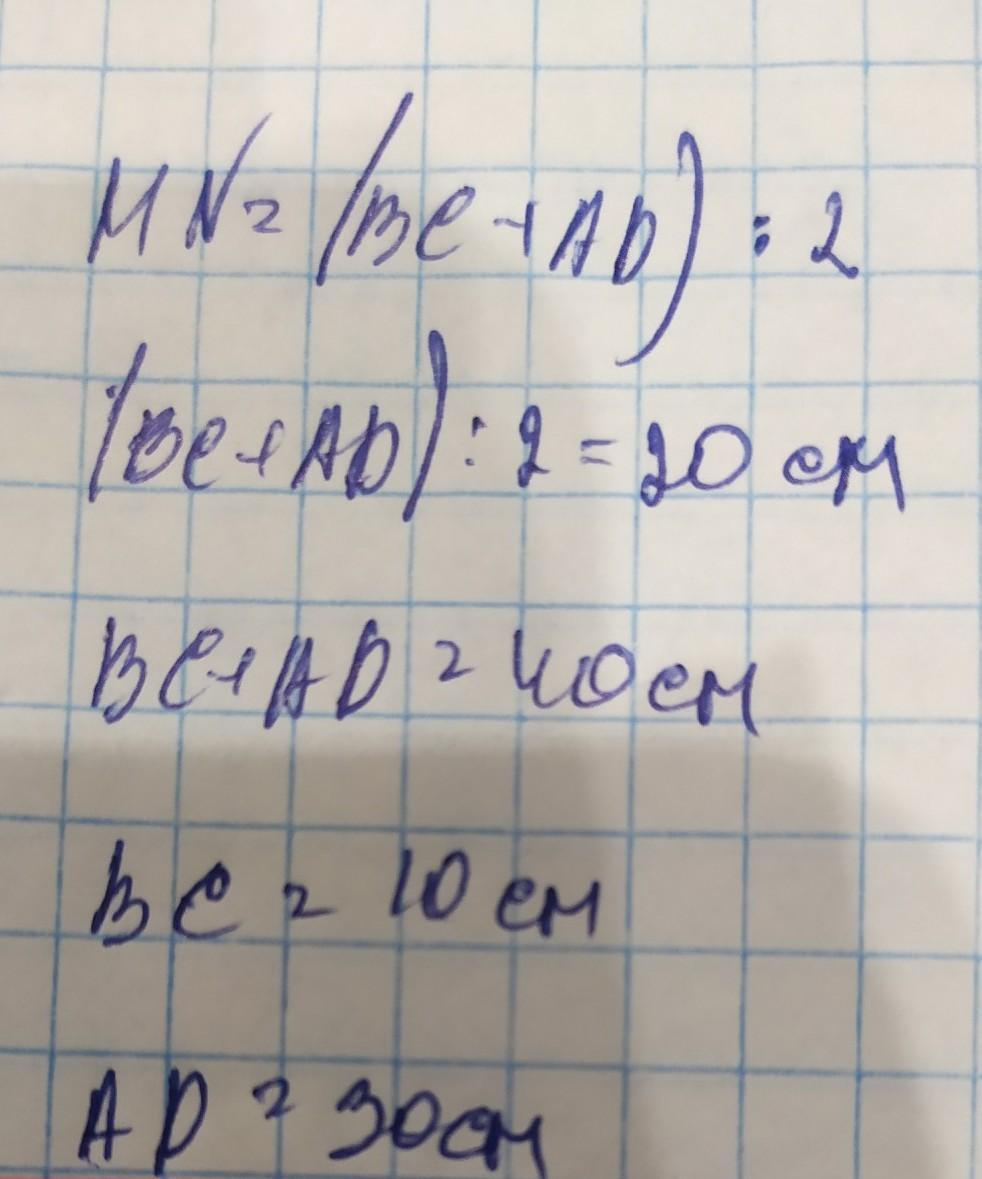 MN = (BC + AD) : 2
(BC + AD) : 2 = 20 см
BC + AD = 40 см
BC = 10 см
AD = 30 см